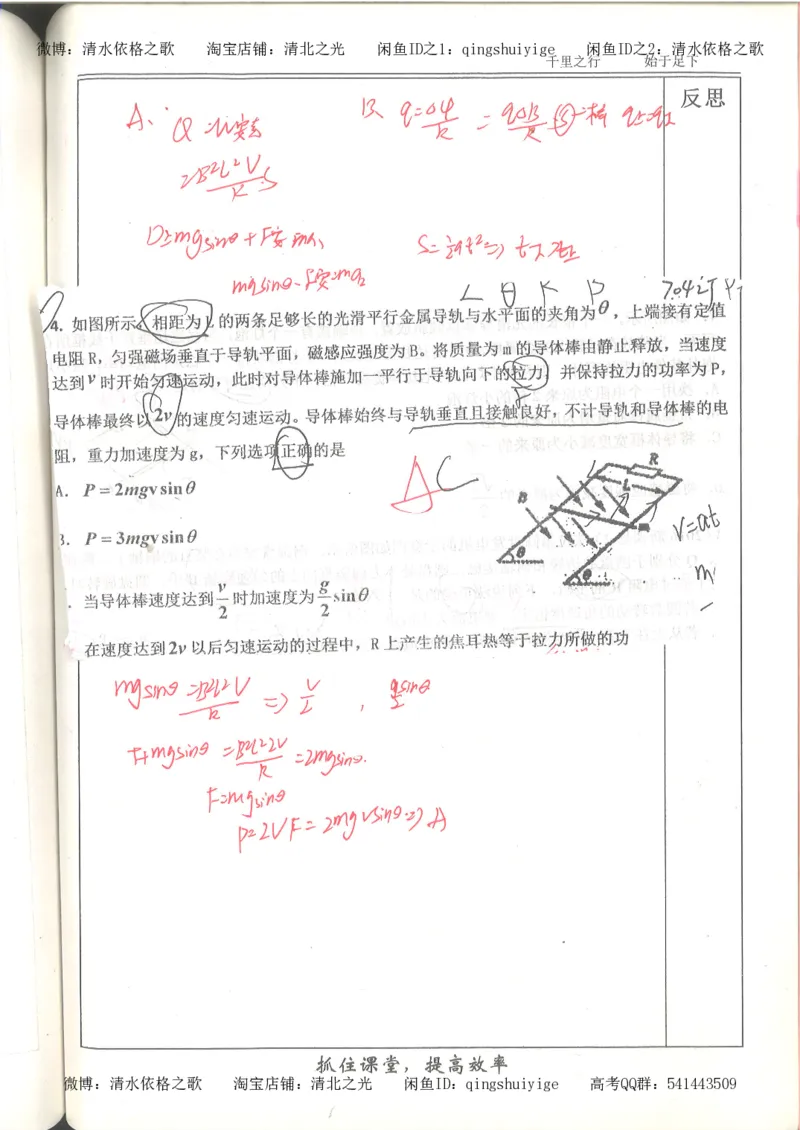 微博：清水依格之歌 淘宝店铺：清北之光 闲鱼ID之1：qingshuiyige 闲鱼ID之2：清水依格之歌
千里之行 始于足下
反思
A、
B、
L θ R P
4．如图所示，相距为L的两条足够长的光滑平行金属导轨与水平面的夹角为θ，上端接有定值
电阻R，匀强磁场垂直于导轨平面，磁感应强度为B。将质量为m的导体棒由静止释放，当速度
达到v时开始匀速运动，此时对导体棒施加一平行于导轨向下的拉力，并保持拉力的功率为P，
F
导体棒最终以2v的速度匀速运动。导体棒始终与导轨垂直且接触良好，不计导轨和导体棒的电
阻，重力加速度为g，下列选项正确的是
AC
R
L
B
m
θ
θ
v=at
m
A． P＝2mgv sinθ
B． P＝3mgv sinθ
当导体棒速度达到v/2时加速度为g/2 sinθ
在速度达到2v以后匀速运动的过程中，R上产生的焦耳热等于拉力所做的功
mgsinθ=B²L²V/R ⇒ V/2 , gsinθ/2
F+mgsinθ=B²L²2V/R=2mgsinθ.
F=mgsinθ
P=2VF=2mgvsinθ⇒A
抓住课堂，提高效率
微博：清水依格之歌 淘宝店铺：清北之光 闲鱼ID：qingshuiyige 高考QQ群：541443509